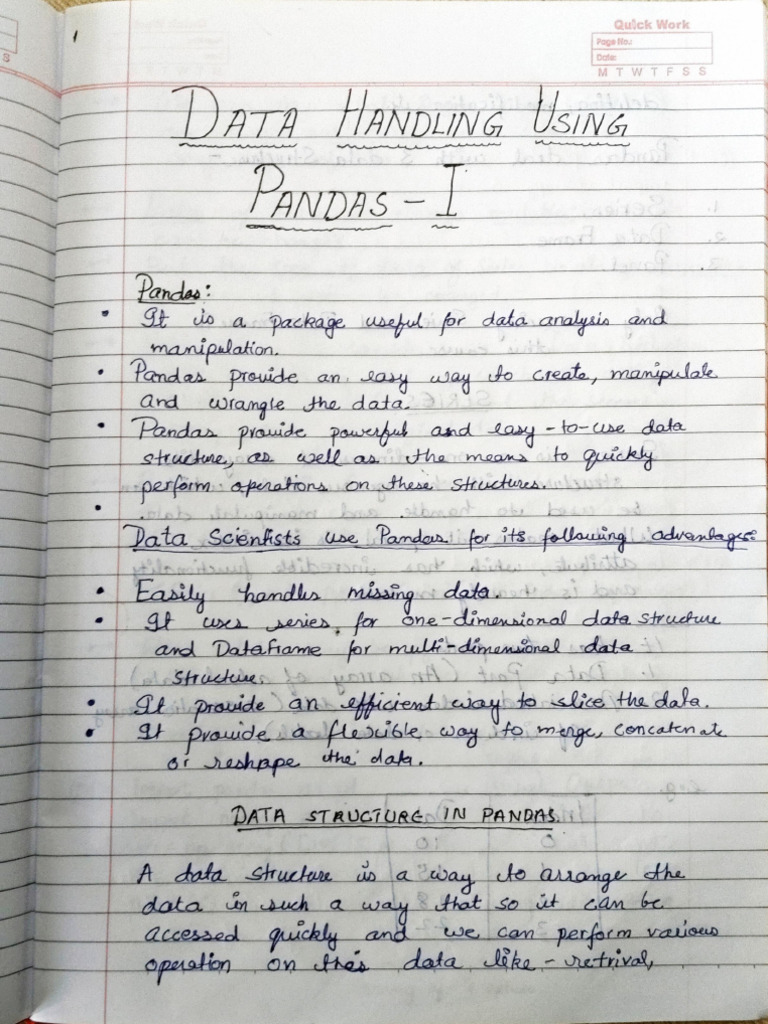 Quick Work
Page No.:
Date:
M T W T F S S
S
DATA HANDLING USING
PANDAS - I
Pandas:
• It is a package useful for data analysis and
manipulation.
• Pandas provide an easy way to create, manipulate
and wrangle the data.
• Pandas provide powerful and easy-to-use data
structure, as well as the means to quickly
perform operations on these structures.
•
Data Scientists use Pandas for its following advantages:
• Easily handles missing data.
• It uses series for one-dimensional data structure
and DataFrame for multi-dimensional data
structure.
• It provide an efficient way to slice the data.
• It provide a flexible way to merge, concatenate
or reshape the data.
DATA STRUCTURE IN PANDAS
A data structure is a way to arrange the
data in such a way that so it can be
accessed quickly and we can perform various
operation on this data like - retrival,